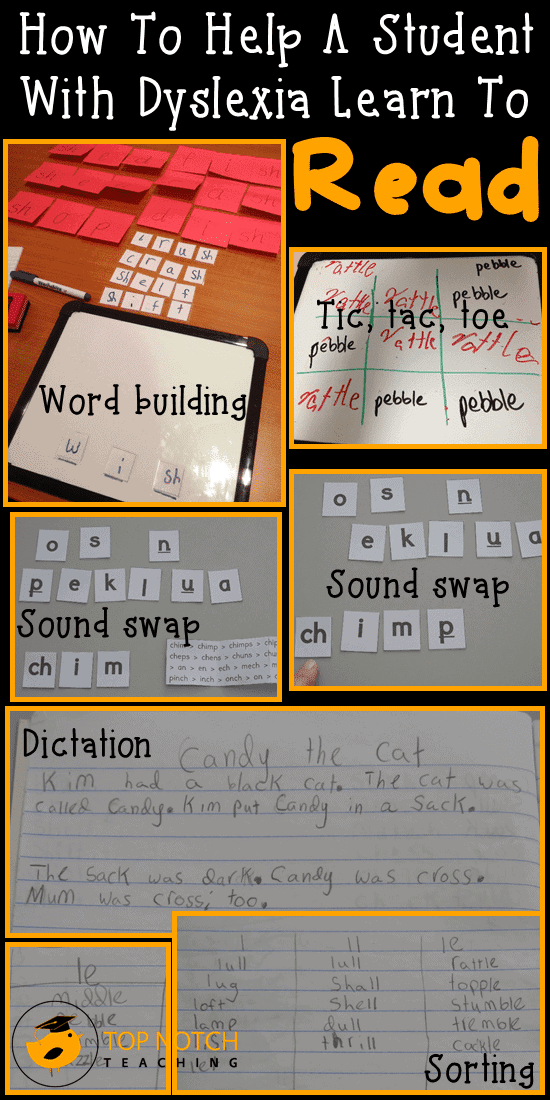 How To Help A Student
With Dyslexia Learn To
Read
sh
sh
sh
c r u sh
c r a sh
sh e l f
sh i f t
Word building
w i sh
rattle pebble
rattle rattle pebble
Tic, tac, toe
pebble rattle rattle
rattle pebble pebble
o s n
p e k l u a
Sound swap
chim > chimp > chimps > chip
cheps > chens > chuns > chu
> an > en > ech > mech > m
pinch > inch > onch > on > o
ch i m
o s n
e k l u a
Sound swap
ch i m p
Dictation
Candy the cat
Kim had a black cat. The cat was
called Candy. Kim put Candy in a sack.
The sack was dark. Candy was cross.
Mum was cross, too.
le
middle
l ll le
lull lull rattle
lug shall topple
loft shell stumble
lamp dull tremble
thrill cockle
Sorting
TOP NOTCH
TEACHING